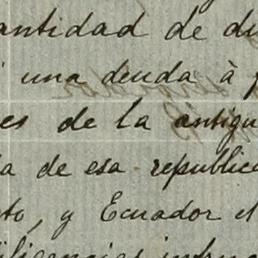 antidad de di
una deuda à p
es de la antigu
a de esa republica
to, y Ecuador el